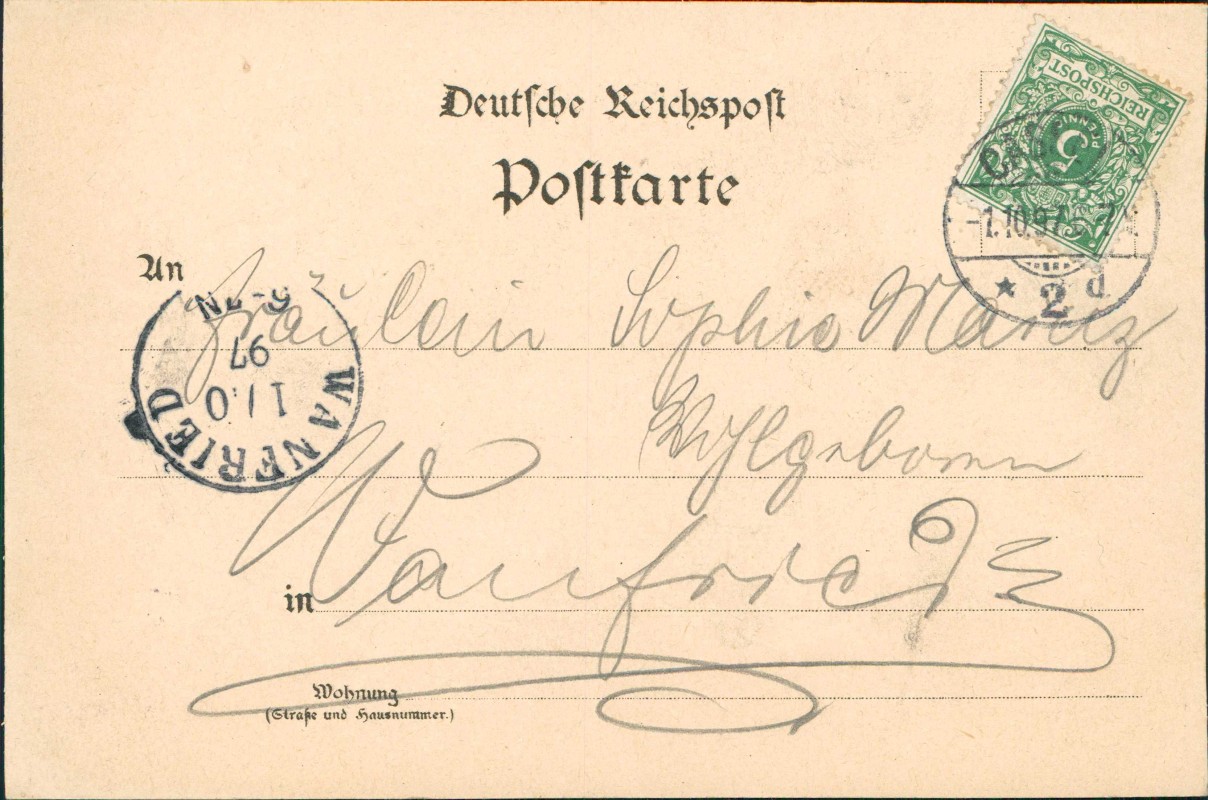 Deutsche Reichspost
Postkarte
REICHSPOST
5
PFENNIG
CASSEL
-1.10.97. 5-7 N.
* 2 d
An Fräulein Sophie
Wohlgeboren
in Wanfried
WANFRIED
1/10
97
6-7N
Wohnung
(Straße und Hausnummer.)